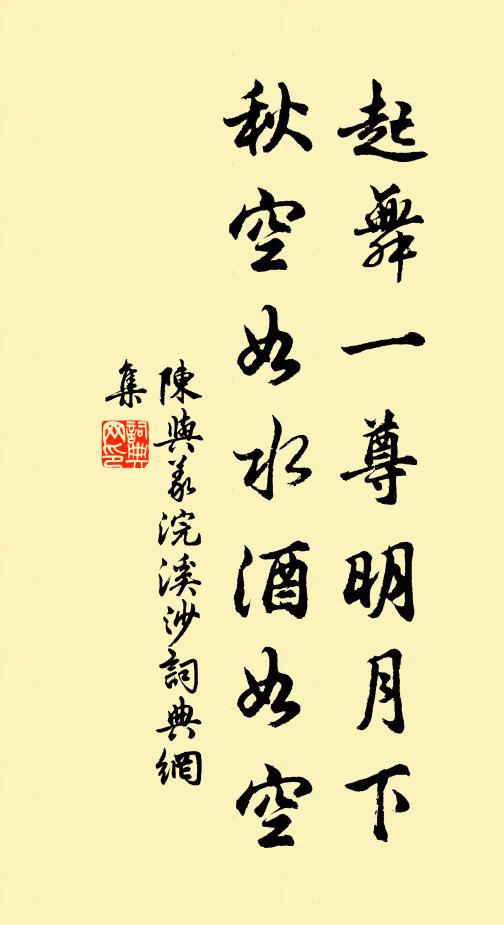 起舞一尊明月下
秋空如水酒如空
陳與義浣溪沙詞典網
集
詞典
网印